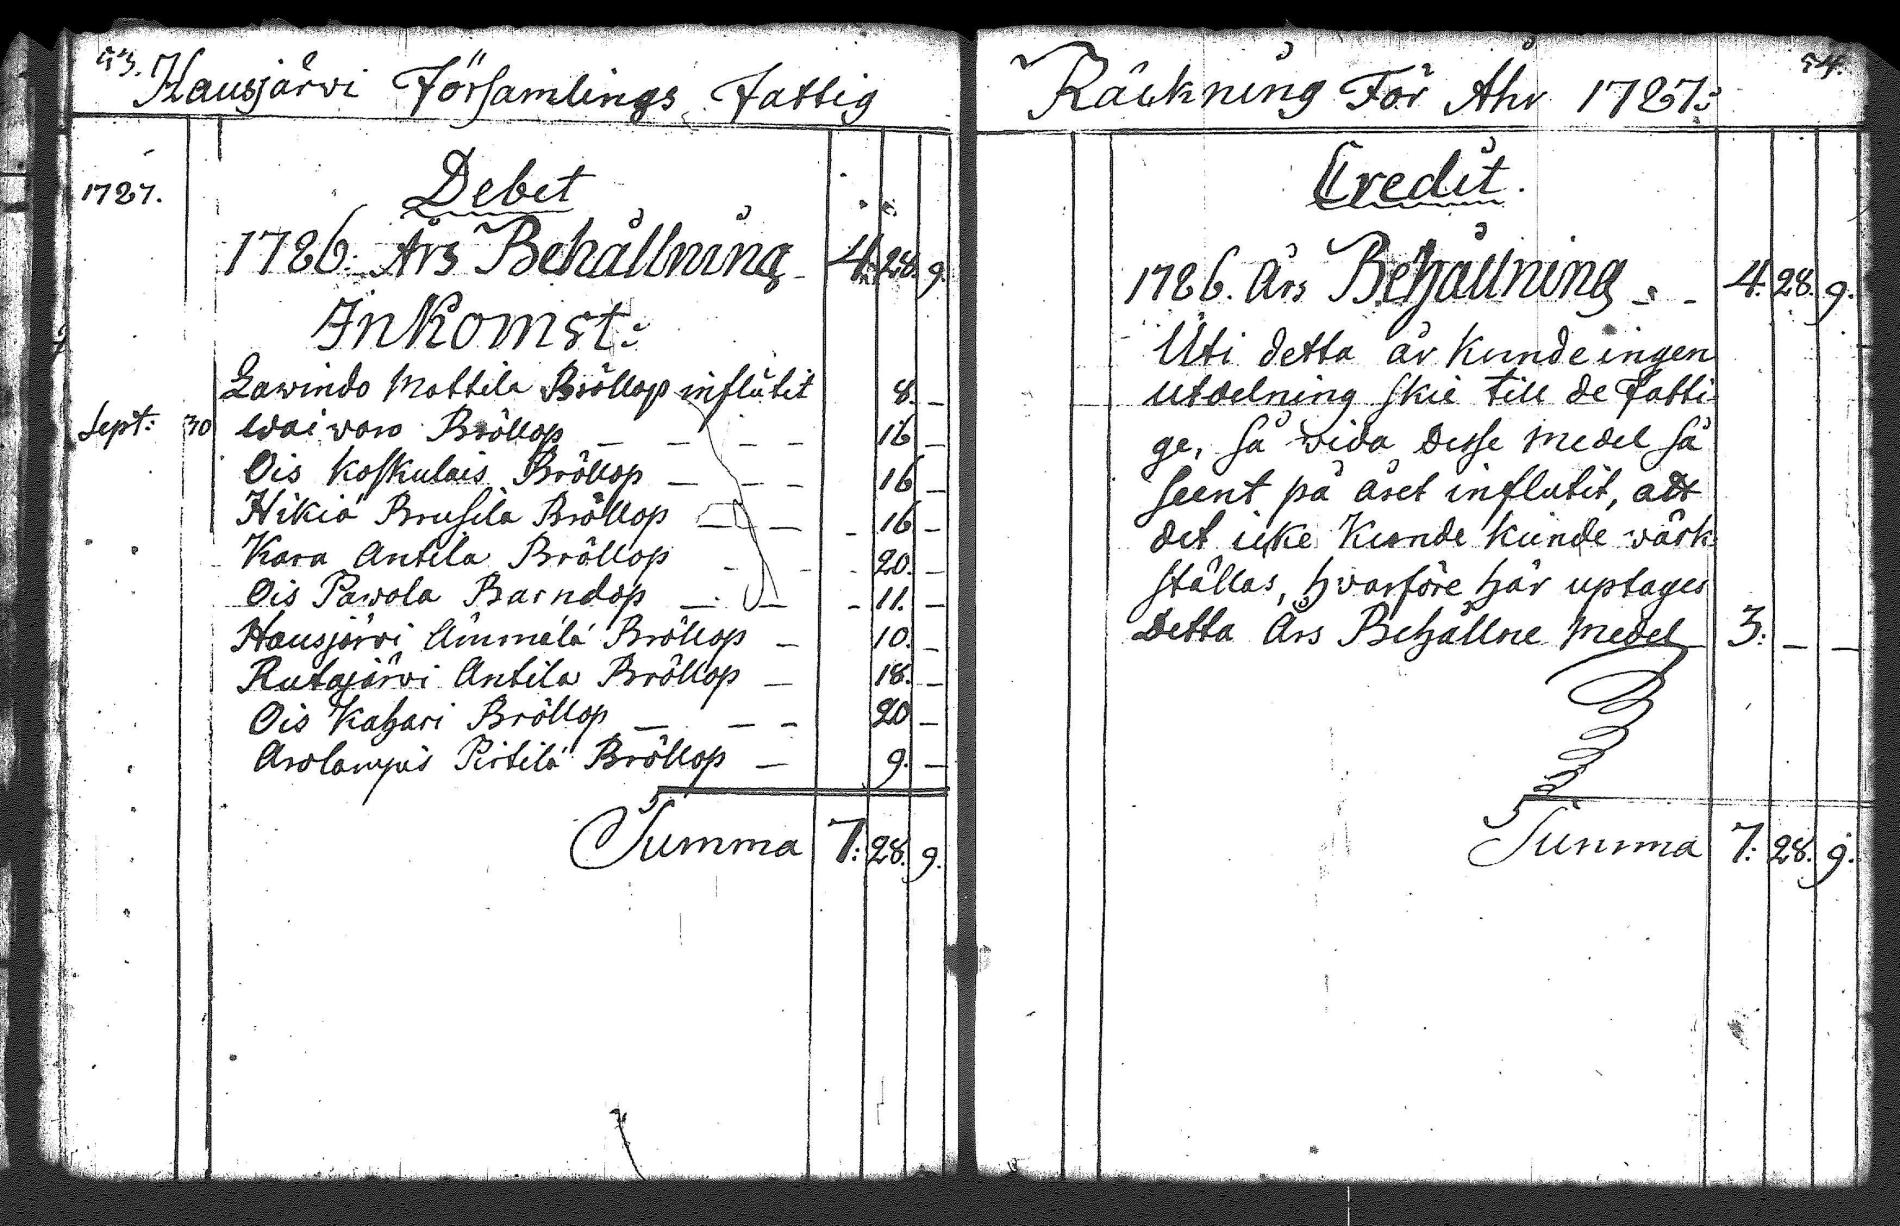 53.
Hausjärvi Församlings Fattig
1787.
Debet
1786. Års Behållning 4. 28. 9.
Inkomst:
Lawindo Mattila Bröllop influtit 8. –
Sept: 30 Waiwaro Bröllop – – – – 16 –
Ois Koskulais Bröllop – – – 16 –
Hikiä Brusila Bröllop – – – 16 –
Kara Antila Bröllop – – – 20. –
Ois Pawola Barndop – – – 11. –
Hausjärvi Ammälä Bröllop – 10. –
Rutajärvi Antila Bröllop – 18. –
Ois Kahari Bröllop – – – 20 –
Arolampis Pirtilä Bröllop – 9. –
Summa 7: 28. 9.
54.
Räckning För Åhr 1787:
Credit.
1786. Års Behållning – – 4. 28. 9.
Uti detta år kunde ingen
utdelning skie till de Fatti-
ge, så vida desse medel så
seent på året influtit, att
det icke kunde kunde värk-
ställas, hvarföre här uptages
Detta Års Behållne Medel 3: – –
Summa 7: 28. 9.